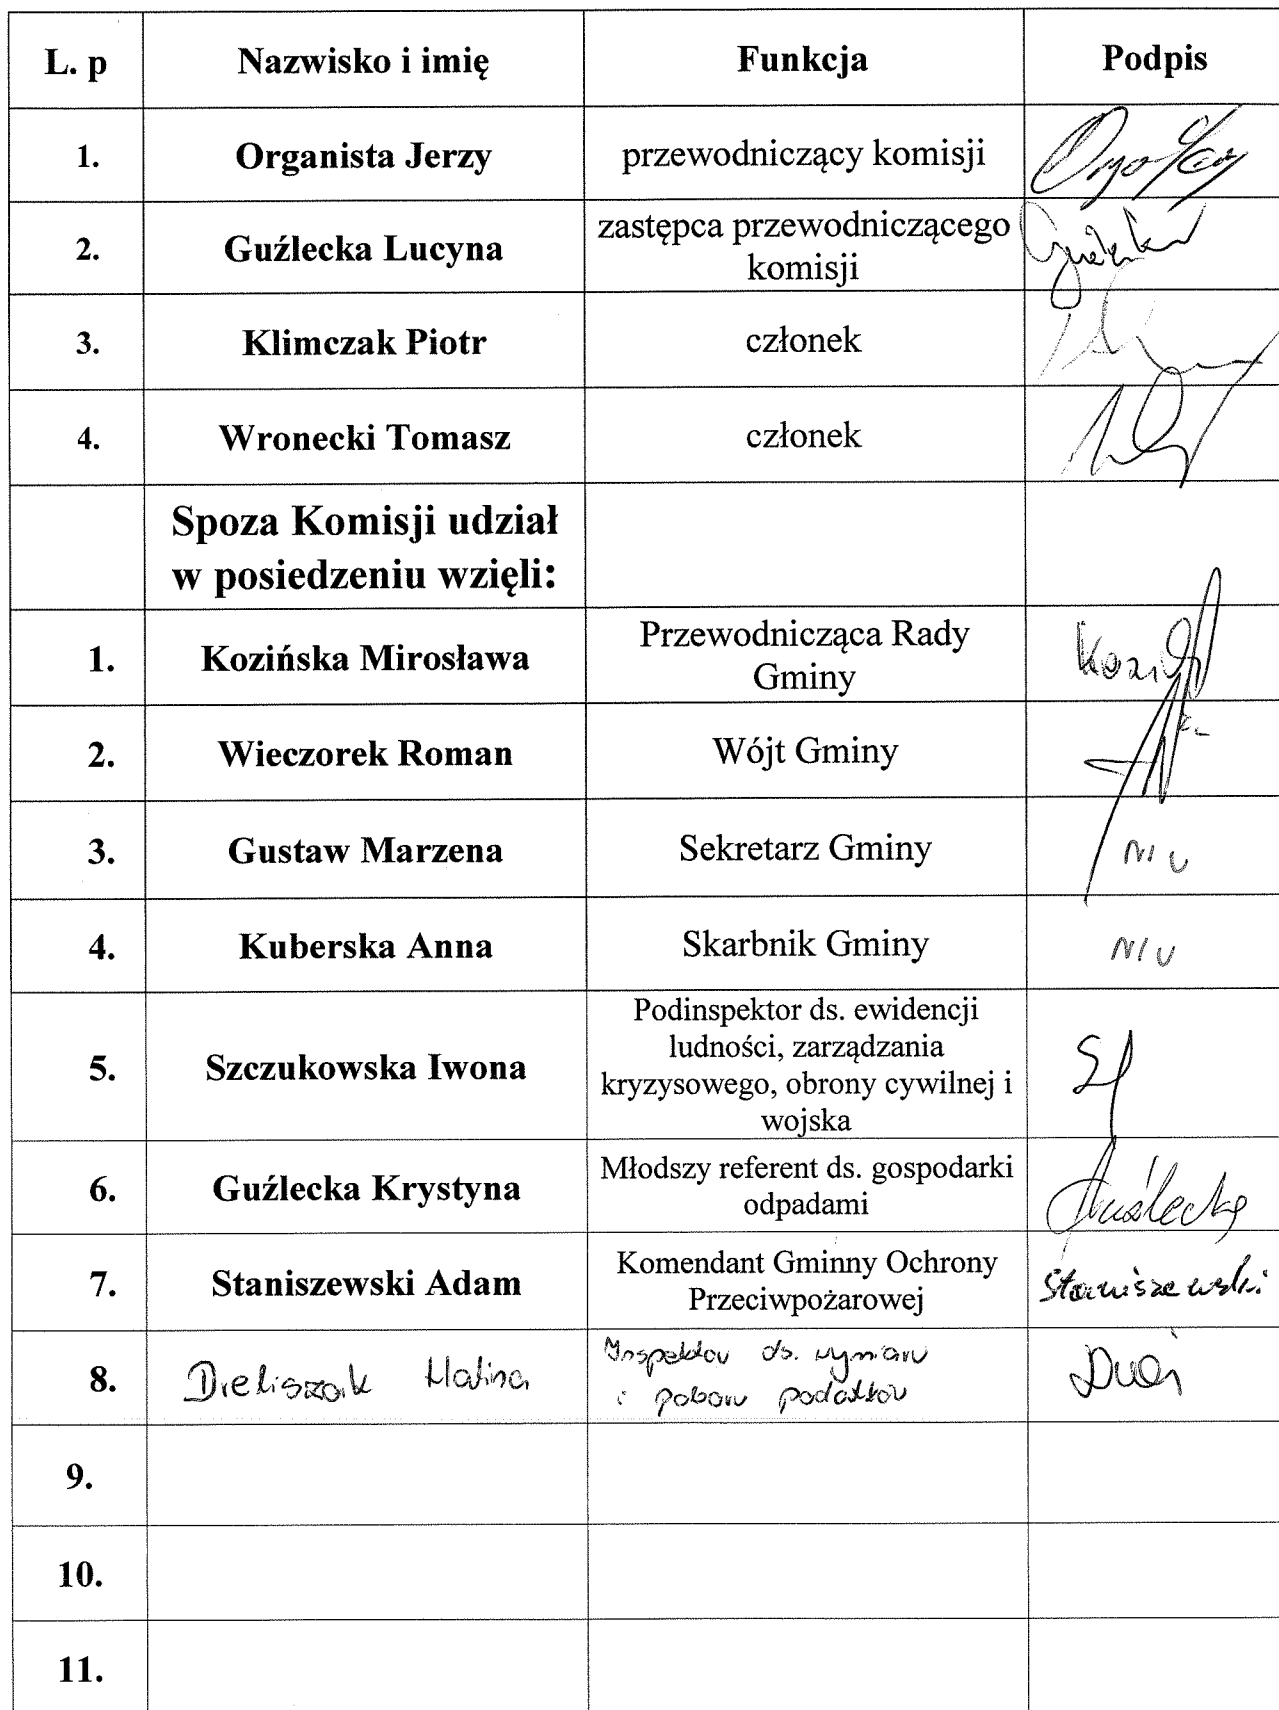 L. p Nazwisko i imię Funkcja Podpis
1. Organista Jerzy przewodniczący komisji
2. Guźlecka Lucyna zastępca przewodniczącego
komisji
3. Klimczak Piotr członek
4. Wronecki Tomasz członek
Spoza Komisji udział
w posiedzeniu wzięli:
1. Kozińska Mirosława Przewodnicząca Rady
Gminy
2. Wieczorek Roman Wójt Gminy
3. Gustaw Marzena Sekretarz Gminy
4. Kuberska Anna Skarbnik Gminy
5. Szczukowska Iwona Podinspektor ds. ewidencji
ludności, zarządzania
kryzysowego, obrony cywilnej i
wojska
6. Guźlecka Krystyna Młodszy referent ds. gospodarki
odpadami Guźlecka
7. Staniszewski Adam Komendant Gminny Ochrony
Przeciwpożarowej Staniszewski
8. Halina Inspektor ds. wymiaru
i poboru podatków
9.
10.
11.